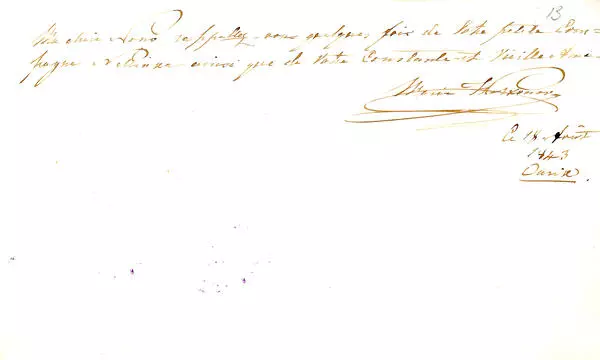 13
Ma chère rappellez-vous quelques fois de Votre petite Com=
pagne ainsi que de Votre Constante et Vieille Amie
Marie
Ce 18 Août
1843